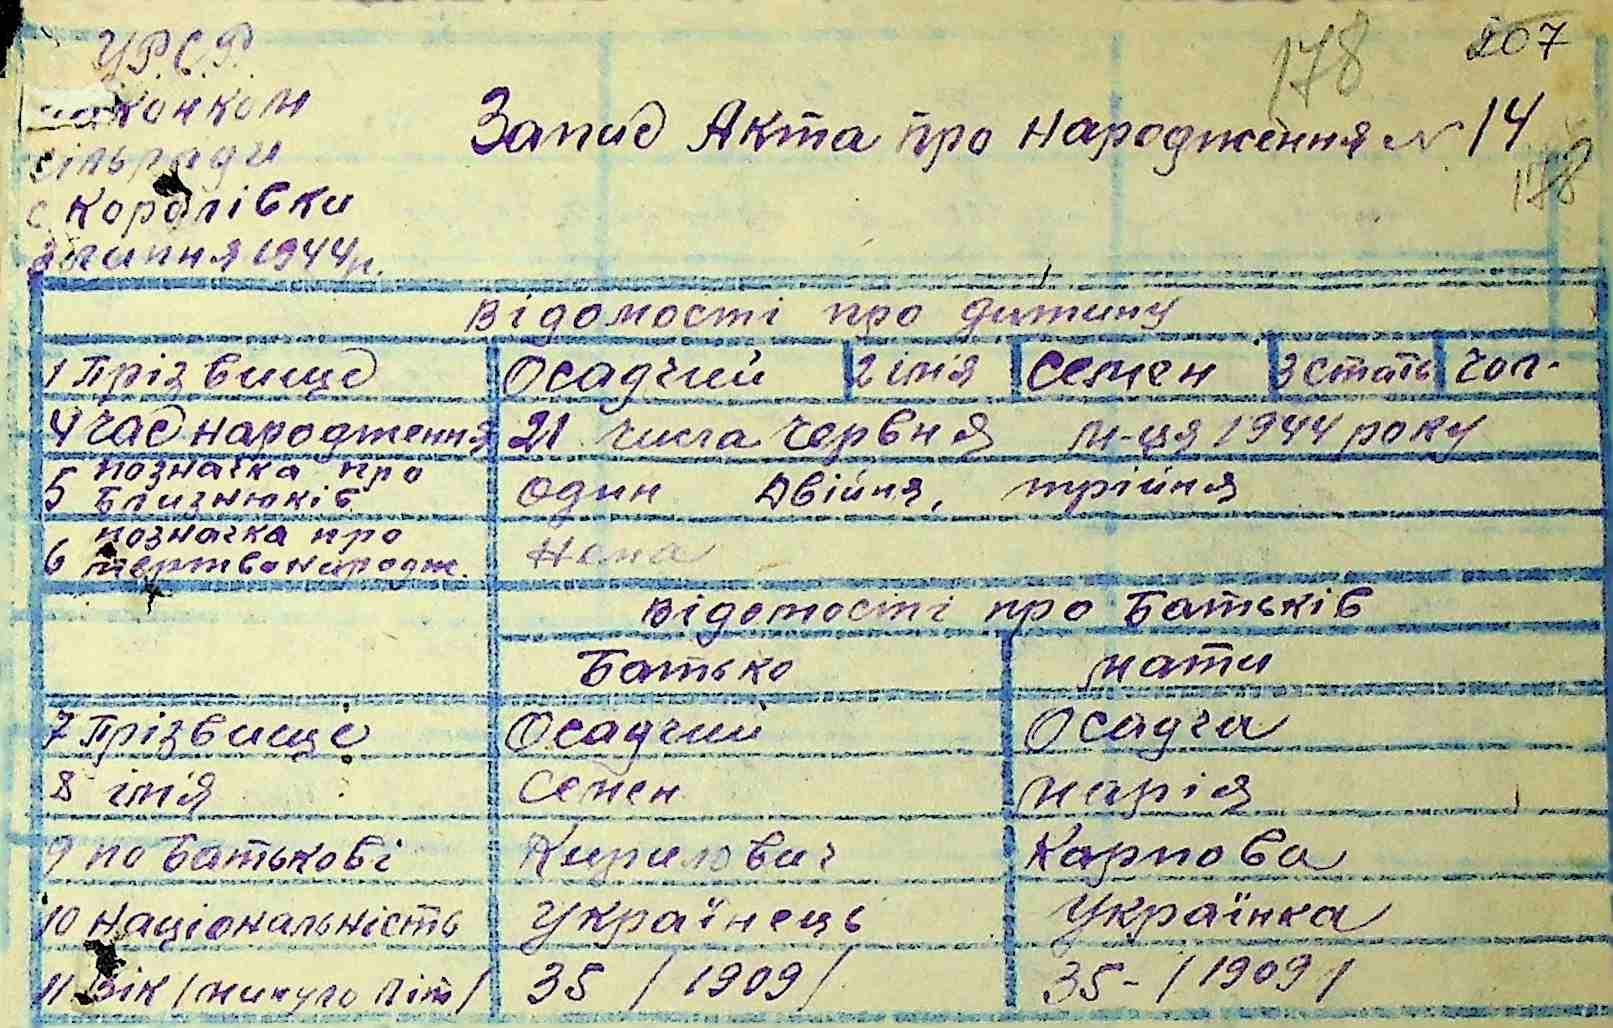 У.Р.С.Р.
178
207
Сільради
Запис Акта про народження № 14
с Королівки
178
липня 1944р.
Відомості про дитину
1 Прізвище Осадчий 2 імя Семен 3 стать чол.
4 Час народження 21 числа Червня м-ця 1944 року
5 позначка про Близнюків один Двійня, трійня
6 позначка про мертвонародж. Нема
Відомості про Батьків
Батько мати
7 Прізвище Осадчий Осадча
8 імя Семен Марія
9 по Батькові Кирилович Карпова
10 національність Українець Українка
11 Вік /минуло літ/ 35 /1909/ 35-/1909/